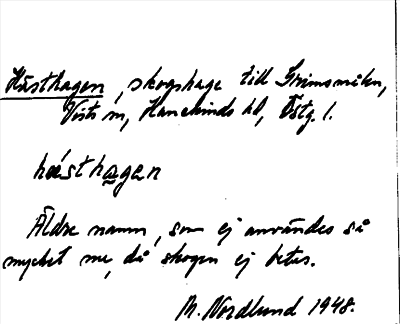 Hästhagen, skogshage till Grimsmålen,
Vists sn, Hanekinds hd, Östg. l.
hæ̀sthagan
Äldre namn, som ej användes så
mycket nu, då skogen ej betas.
M. Nordlund 1948.